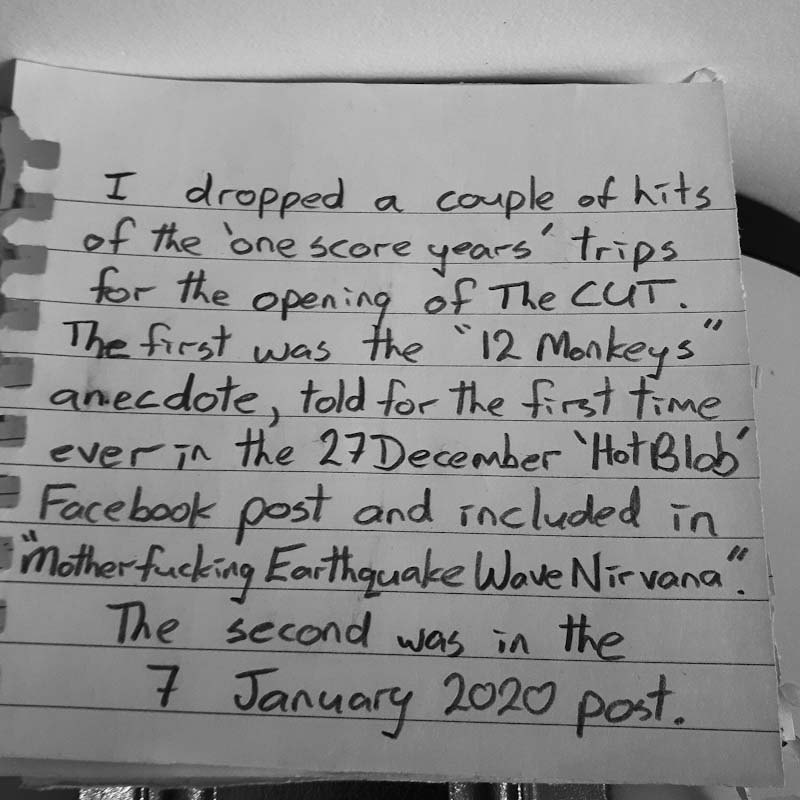 I dropped a couple of hits
of the 'one score years' trips
for the opening of The CUT.
The first was the "12 Monkeys"
anecdote, told for the first time
ever in the 27 December 'Hot Blob'
Facebook post and included in
"Motherfucking Earthquake Wave Nirvana".
The second was in the
7 January 2020 post.